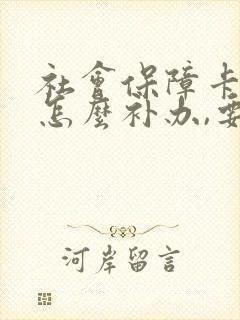 社會保障卡
怎麼补办,要
河岸留言